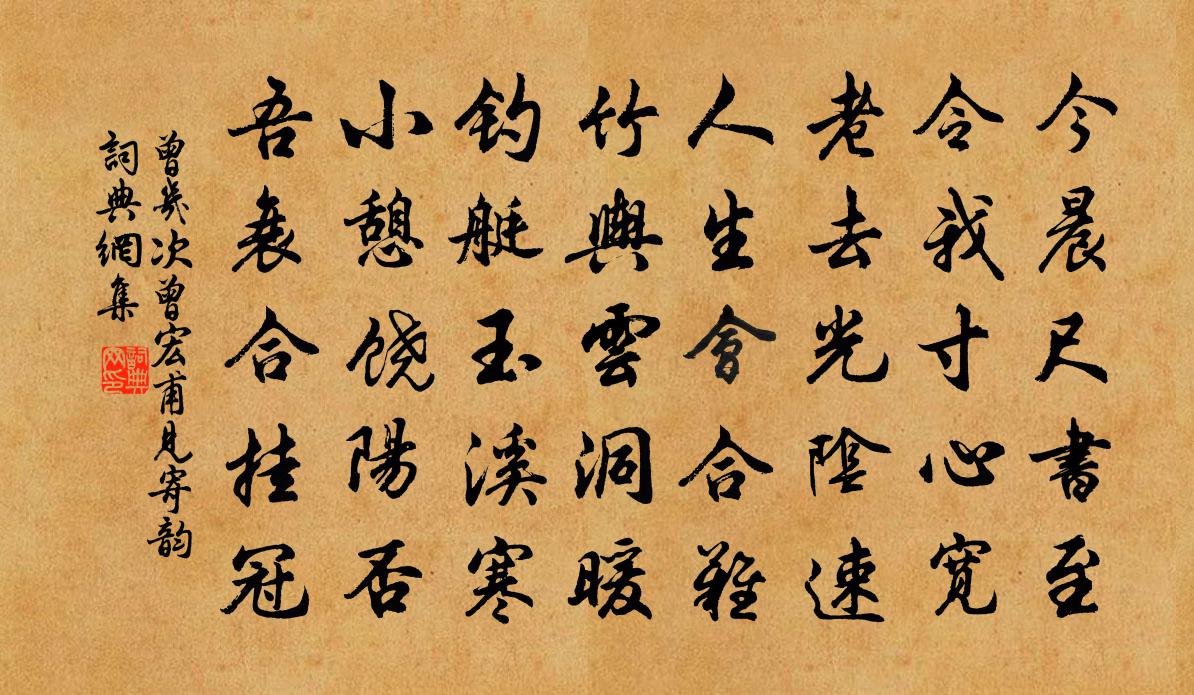 今晨尺書至
令我寸心寬
老去光陰速
人生會合難
竹輿雲洞暖
釣艇玉溪寒
小憩饶陽否
吾衰合挂冠
曾幾次曾宏甫見寄韵
詞典網集
詞典网印